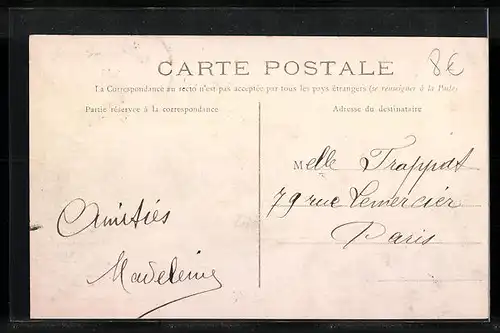 CARTE POSTALE
8€
La Correspondance au recto n'est pas acceptée par tous les pays étrangers (se renseigner à la Poste)
Partie réservée à la correspondance
Adresse du destinataire
Melle Trappdt
79 rue Lemercier
Paris
Amitiés
Madeleine